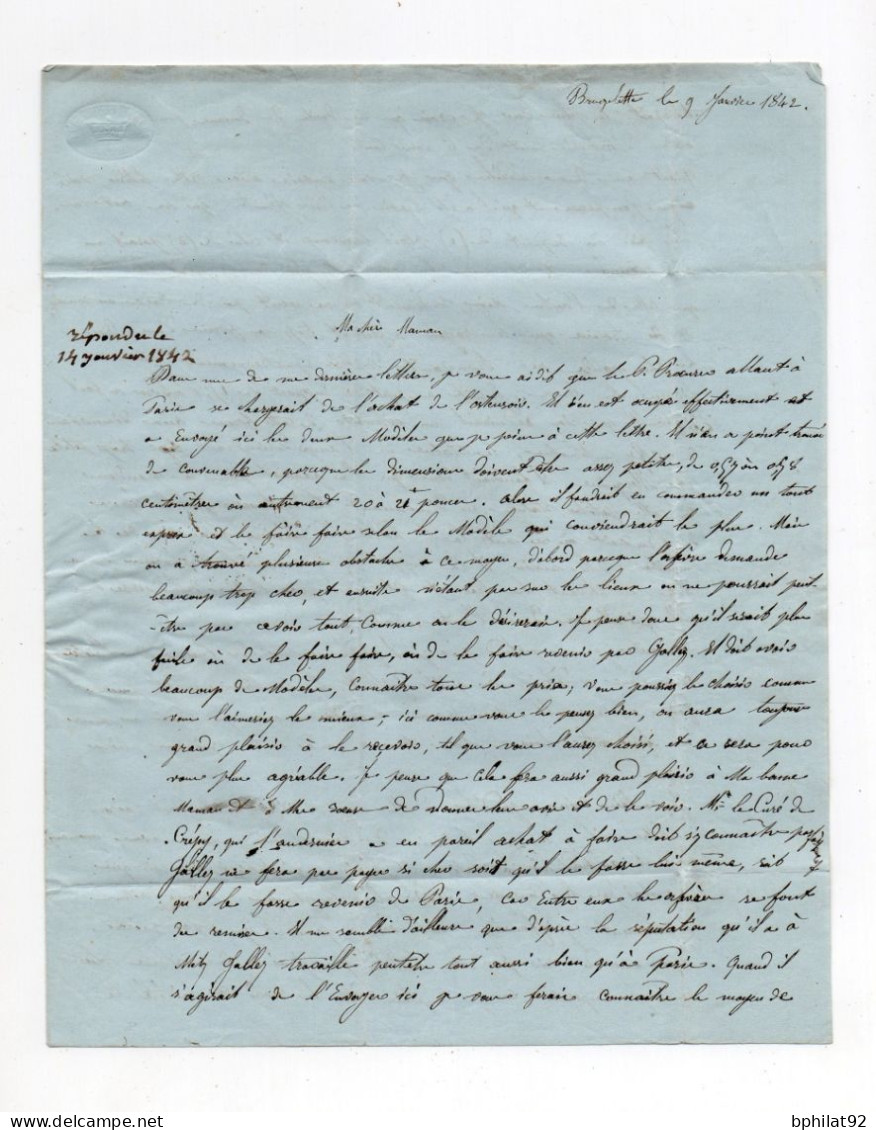 Brugelette le 9 Janvier 1842.
Ma chère Maman
répondu le
14 janvier 1842
Dans une de mes dernières lettres, je vous ai dit que le P. Procureur allant à
Paris se chargerait de l'achat de l'ostensoir. Il s'en est occupé effectivement et
a Envoyé ici les deux Modèles que je joins à cette lettre. Il n'en a point trouvé
de convenable, parceque les dimensions doivent être assez petites, de
centimètres ou autrement 20 à 21 pouces. alors il faudrait en commander un tout
exprès et le faire faire selon le Modèle qui conviendrait le plus. Mais
on a trouvé plusieurs obstacles à ce moyen, d'abord parceque l'orfèvre demande
beaucoup trop cher, et ensuite n'étant pas sur les lieux on ne pourrait peut-
-être pas avoir tout comme on le désirerait. Je pense donc qu'il serait plus
facile ou de le faire faire, ou de le faire revenir par Gallez. Il doit avoir
beaucoup de Modèles, connaître tous les prix; vous pourriez le choisir comme
vous l'aimeriez le mieux; ici comme vous le pensez bien, on aura toujours
grand plaisir à le recevoir, tel que vous l'aurez choisi, et ce sera pour
vous plus agréable. Je pense que cela fera aussi grand plaisir à Ma bonne
Maman et à Mes soeurs de donner leur avis et de le voir. Mr. le Curé de
Crépy, qui l'an dernier a en pareil achat à faire doit s'y connaître
Gallez ne fera pas payer si cher soit qu'il le fasse lui même, soit
qu'il le fasse revenir de Paris, car Entre eux les orfèvres se font
des remises. Il me semble d'ailleurs que d'après la réputation qu'il a à
Metz Gallez travaille peutêtre tout aussi bien qu'à Paris. Quand il
s'agirait de l'Envoyer ici je vous ferais connaître le moyen de
bphilat92